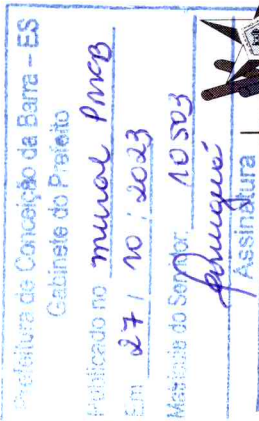 Prefeitura de Conceição da Barra – ES
Gabinete do Prefeito
Publicado no mural PMCB
Em 27 / 10 / 2023
Matrícula do Servidor 10503
Assinatura